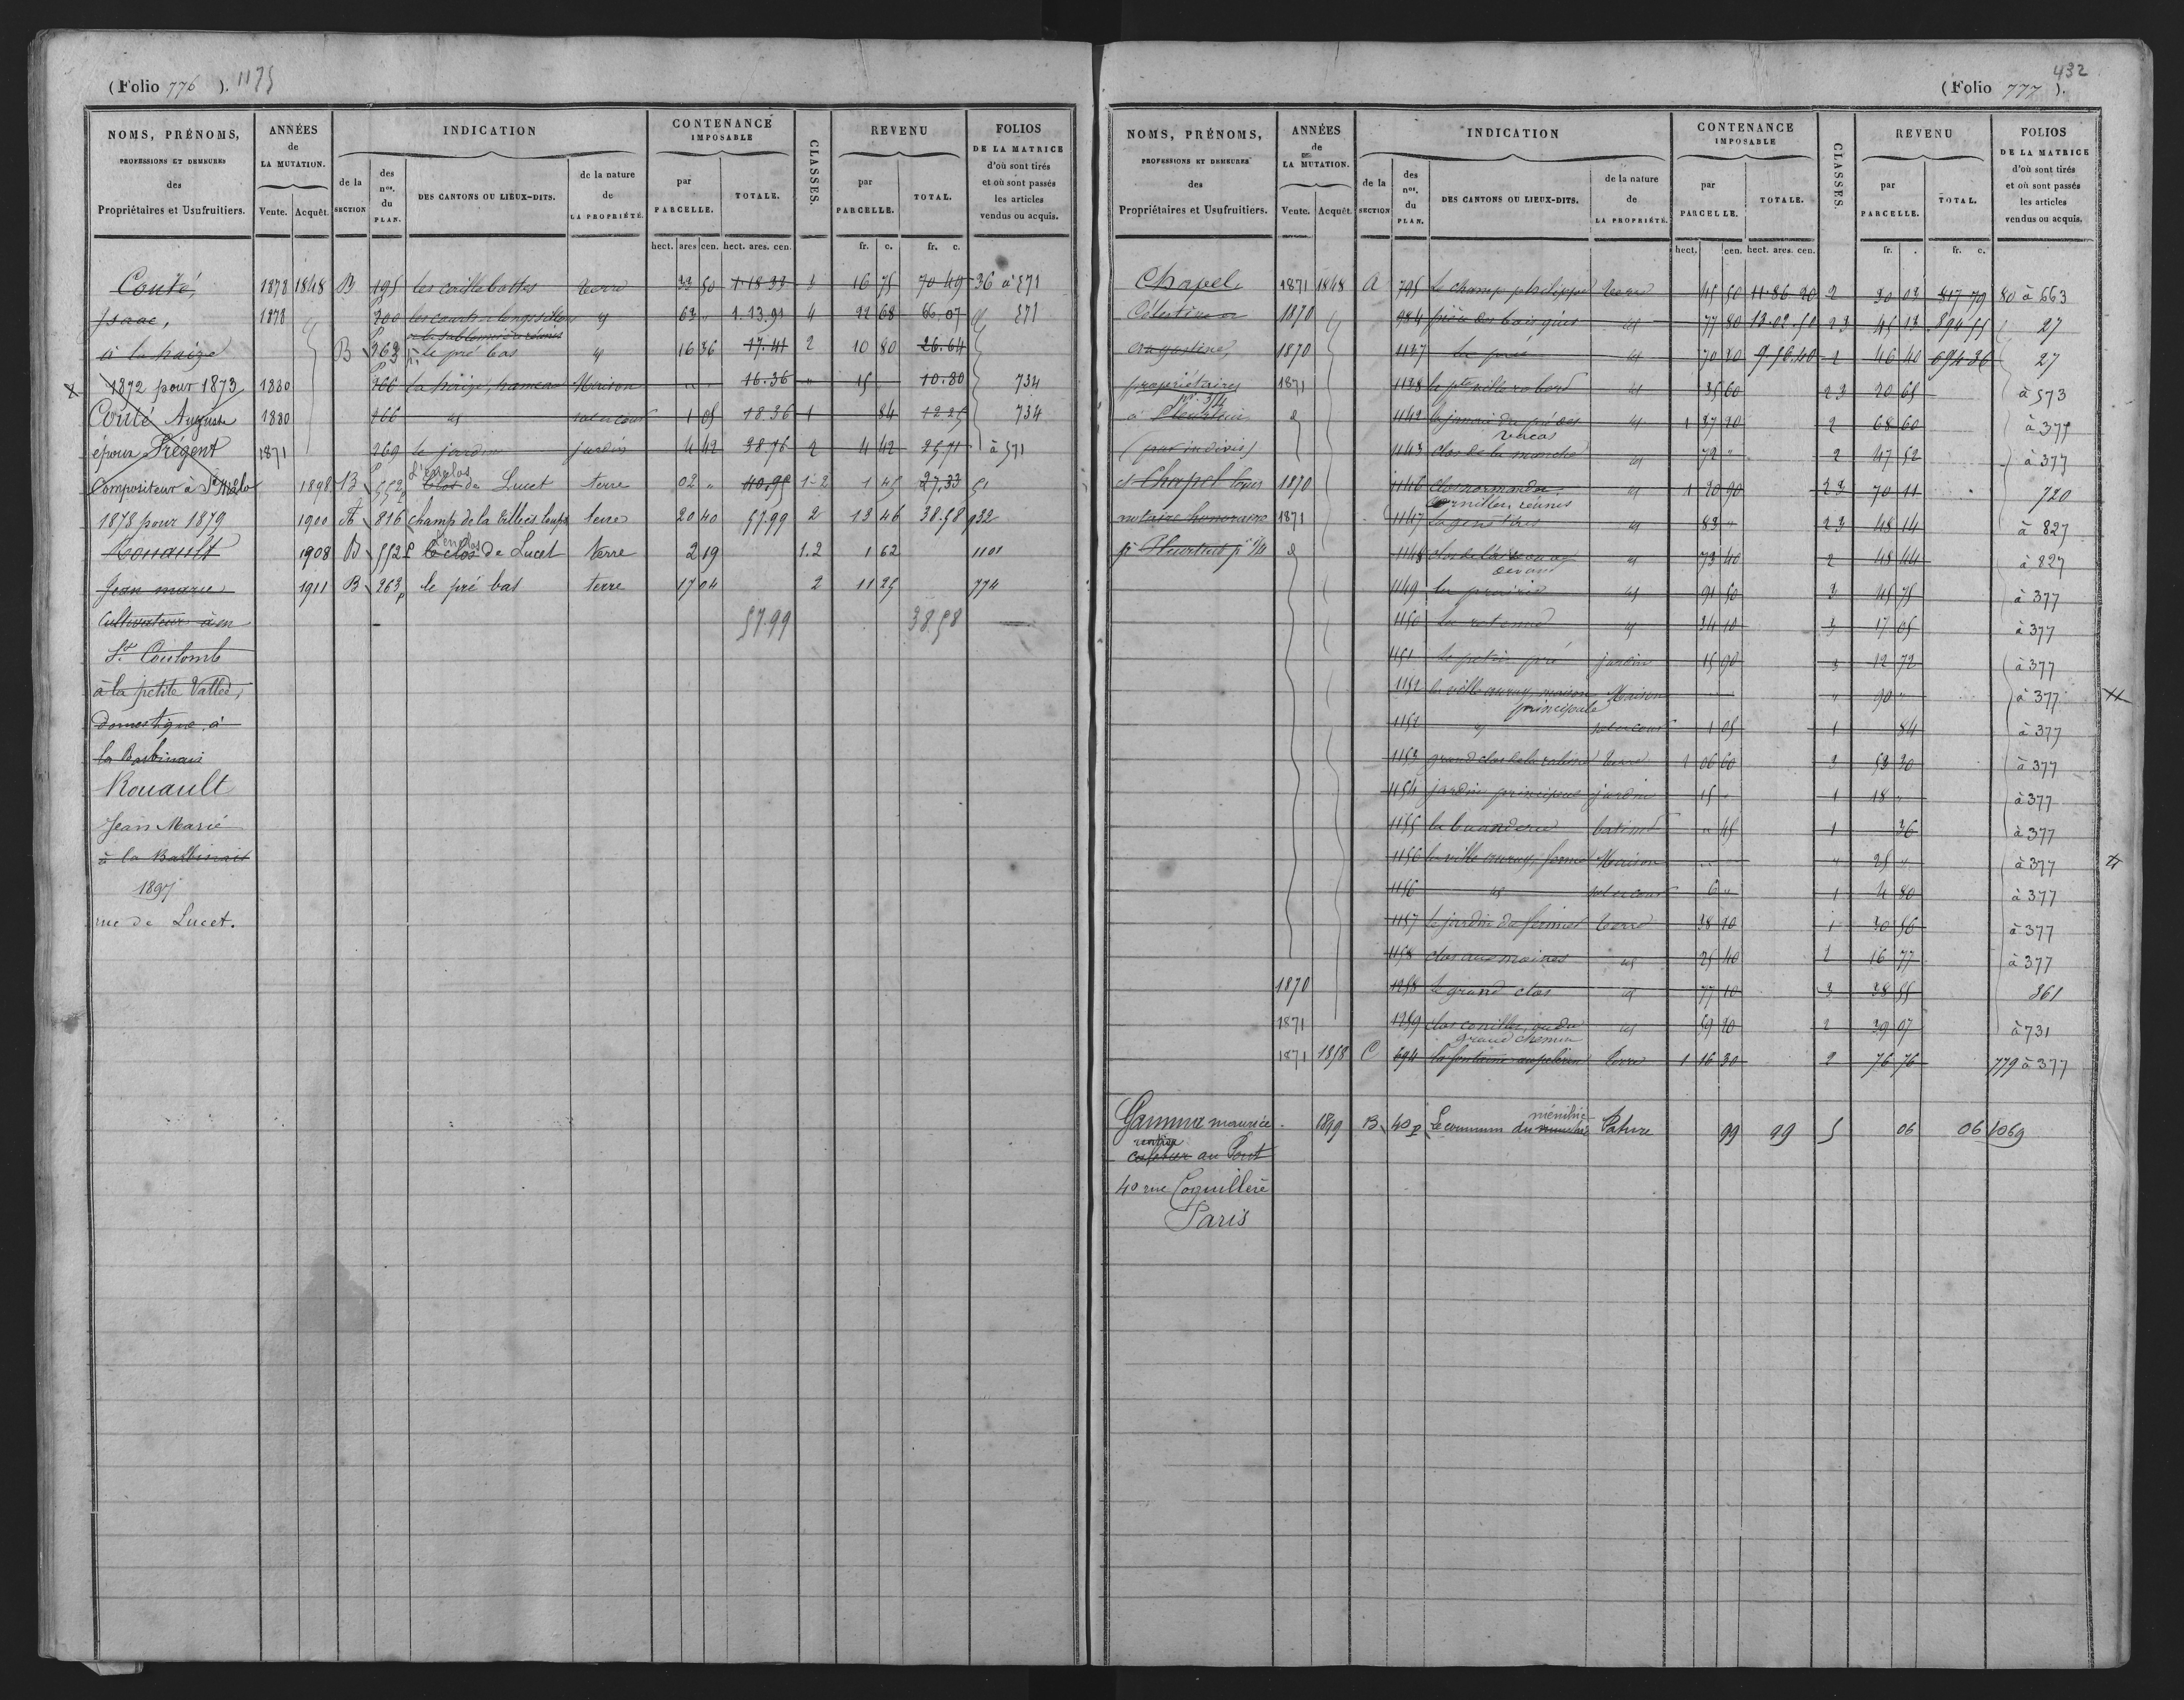 (Folio 776 ). 1175
NOMS, PRÉNOMS, PROFESSIONS ET DEMEURES des Propriétaires et Usufruitiers.
ANNÉES de LA MUTATION. Vente. Acquêt.
INDICATION de la SECTION des nos. du PLAN. DES CANTONS OU LIEUX-DITS. de la nature de LA PROPRIÉTÉ.
CONTENANCE IMPOSABLE par PARCELLE. TOTALE.
CLASSES.
REVENU par PARCELLE. TOTAL.
FOLIOS DE LA MATRICE d'où sont tirés et où sont passés les articles vendus ou acquis.
hect. ares cen. hect. ares. cen. fr. c. fr. c.
Couté, 1878 1848 B 195 les caillebottes terre 33 50 1.18.33 3 16 75 70 49 36 à 571
Isaac, 1878 200 les courts et longs sillons id 63 " 1.13.91 4 22 68 66.07 571
et la sablonnière réunis
à la haize B 263 p le pré bas id 16 36 17.41 2 10 80 26.64
X 1872 pour 1873 1880 266 la haize, hameau Maison " " 16.36 " 15 10.80 734
Couté Auguste 1880 266 id sol et cour 1 05 18.36 1 84 12 25 734
époux Prégent 1871 269 le jardin jardin 4 42 38.76 2 4 42 25.71 à 571
L'enclos
Compositeur à St Malo 1898 B 552 p Clos de Lucet terre 02 " 40.95 1-2 1 45 27.33 51
1878 pour 1879 1900 A 816 champ de la ville ès loups terre 20 40 57.99 2 13 46 38.58 932
l'enclos
Rouault 1908 B 552 p le clos de Lucet terre 2 19 1.2 1 62 1101
Jean marie 1911 B 263 p le pré bas terre 17 04 2 11 25 774
Cultivateur à en 57.99 38.58
St. Coulomb
à la petite Vallée,
domestique à
la Barbinais
Rouault
Jean Marie
à la Barbinais
1897
rue de Lucet.
432
(Folio 777 ).
NOMS, PRÉNOMS, PROFESSIONS ET DEMEURES des Propriétaires et Usufruitiers.
ANNÉES de LA MUTATION. Vente. Acquêt.
INDICATION de la SECTION des nos. du PLAN. DES CANTONS OU LIEUX-DITS. de la nature de LA PROPRIÉTÉ.
CONTENANCE IMPOSABLE par PARCELLE. TOTALE.
CLASSES.
REVENU par PARCELLE. TOTAL.
FOLIOS DE LA MATRICE d'où sont tirés et où sont passés les articles vendus ou acquis.
hect. cen. hect. ares. cen. fr. . fr. c.
Chapel 1871 1848 A 795 le champ philippe terre 45 50 11.86.20 2 30 03 817 79 80 à 663
Célestine 1870 984 id 77 80 13.02.50 2 3 45 13 894 55 27
Augustine, 1870 1127 le pré id 70 20 9.56.40 2 46 40 694 36 27
propriétaires 1871 1128 id 35 60 2 3 20 65 à 573
pr. 3/4
à Pleurtuit d 1142 id 1 37 20 2 68 60 à 377
(par indivis) 1143 clos de la manche id 72 " 2 47 52 à 377
et Chapel Louis 1870 1146 clos normand id 1 20 90 2 3 70 11 720
réunis
notaire honoraire 1871 1147 id 83 " 2 3 48 14 à 827
à Pleurtuit pr 1/4 d 1148 id 73 40 2 48 44 à 827
1149 la prairie id 91 50 3 45 75 à 377
1150 id 34 10 3 17 05 à 377
1151 le petit pré jardin 15 90 3 12 72 à 377
1152 la ville auray, maison principale Maison " 90 " à 377
1152 id sol et cour 1 05 1 84 à 377
1153 grand clos terre 1 06 60 3 53 30 à 377
1154 jardin principal jardin 15 " 1 18 " à 377
1155 la buanderie batiment " 45 1 36 à 377
1156 la ville auray, ferme Maison " 25 " à 377
1156 id sol et cour 6 " 1 4 80 à 377
1157 le jardin du fermier terre 38 20 1 30 56 à 377
1158 clos aux moines id 25 40 2 16 77 à 377
1870 1258 le grand clos id 77 10 3 38 55 361
1871 1259 grand chemin id 59 20 2 39 07 à 731
1871 1858 C 694 la fontaine terre 1 16 30 2 76 76 779 à 377
Gamme maurice 1899 B 40 p Le commun du Pature 99 99 5 06 06 1069
rentier
cafetier au Pont
40 rue Coquillère
Paris